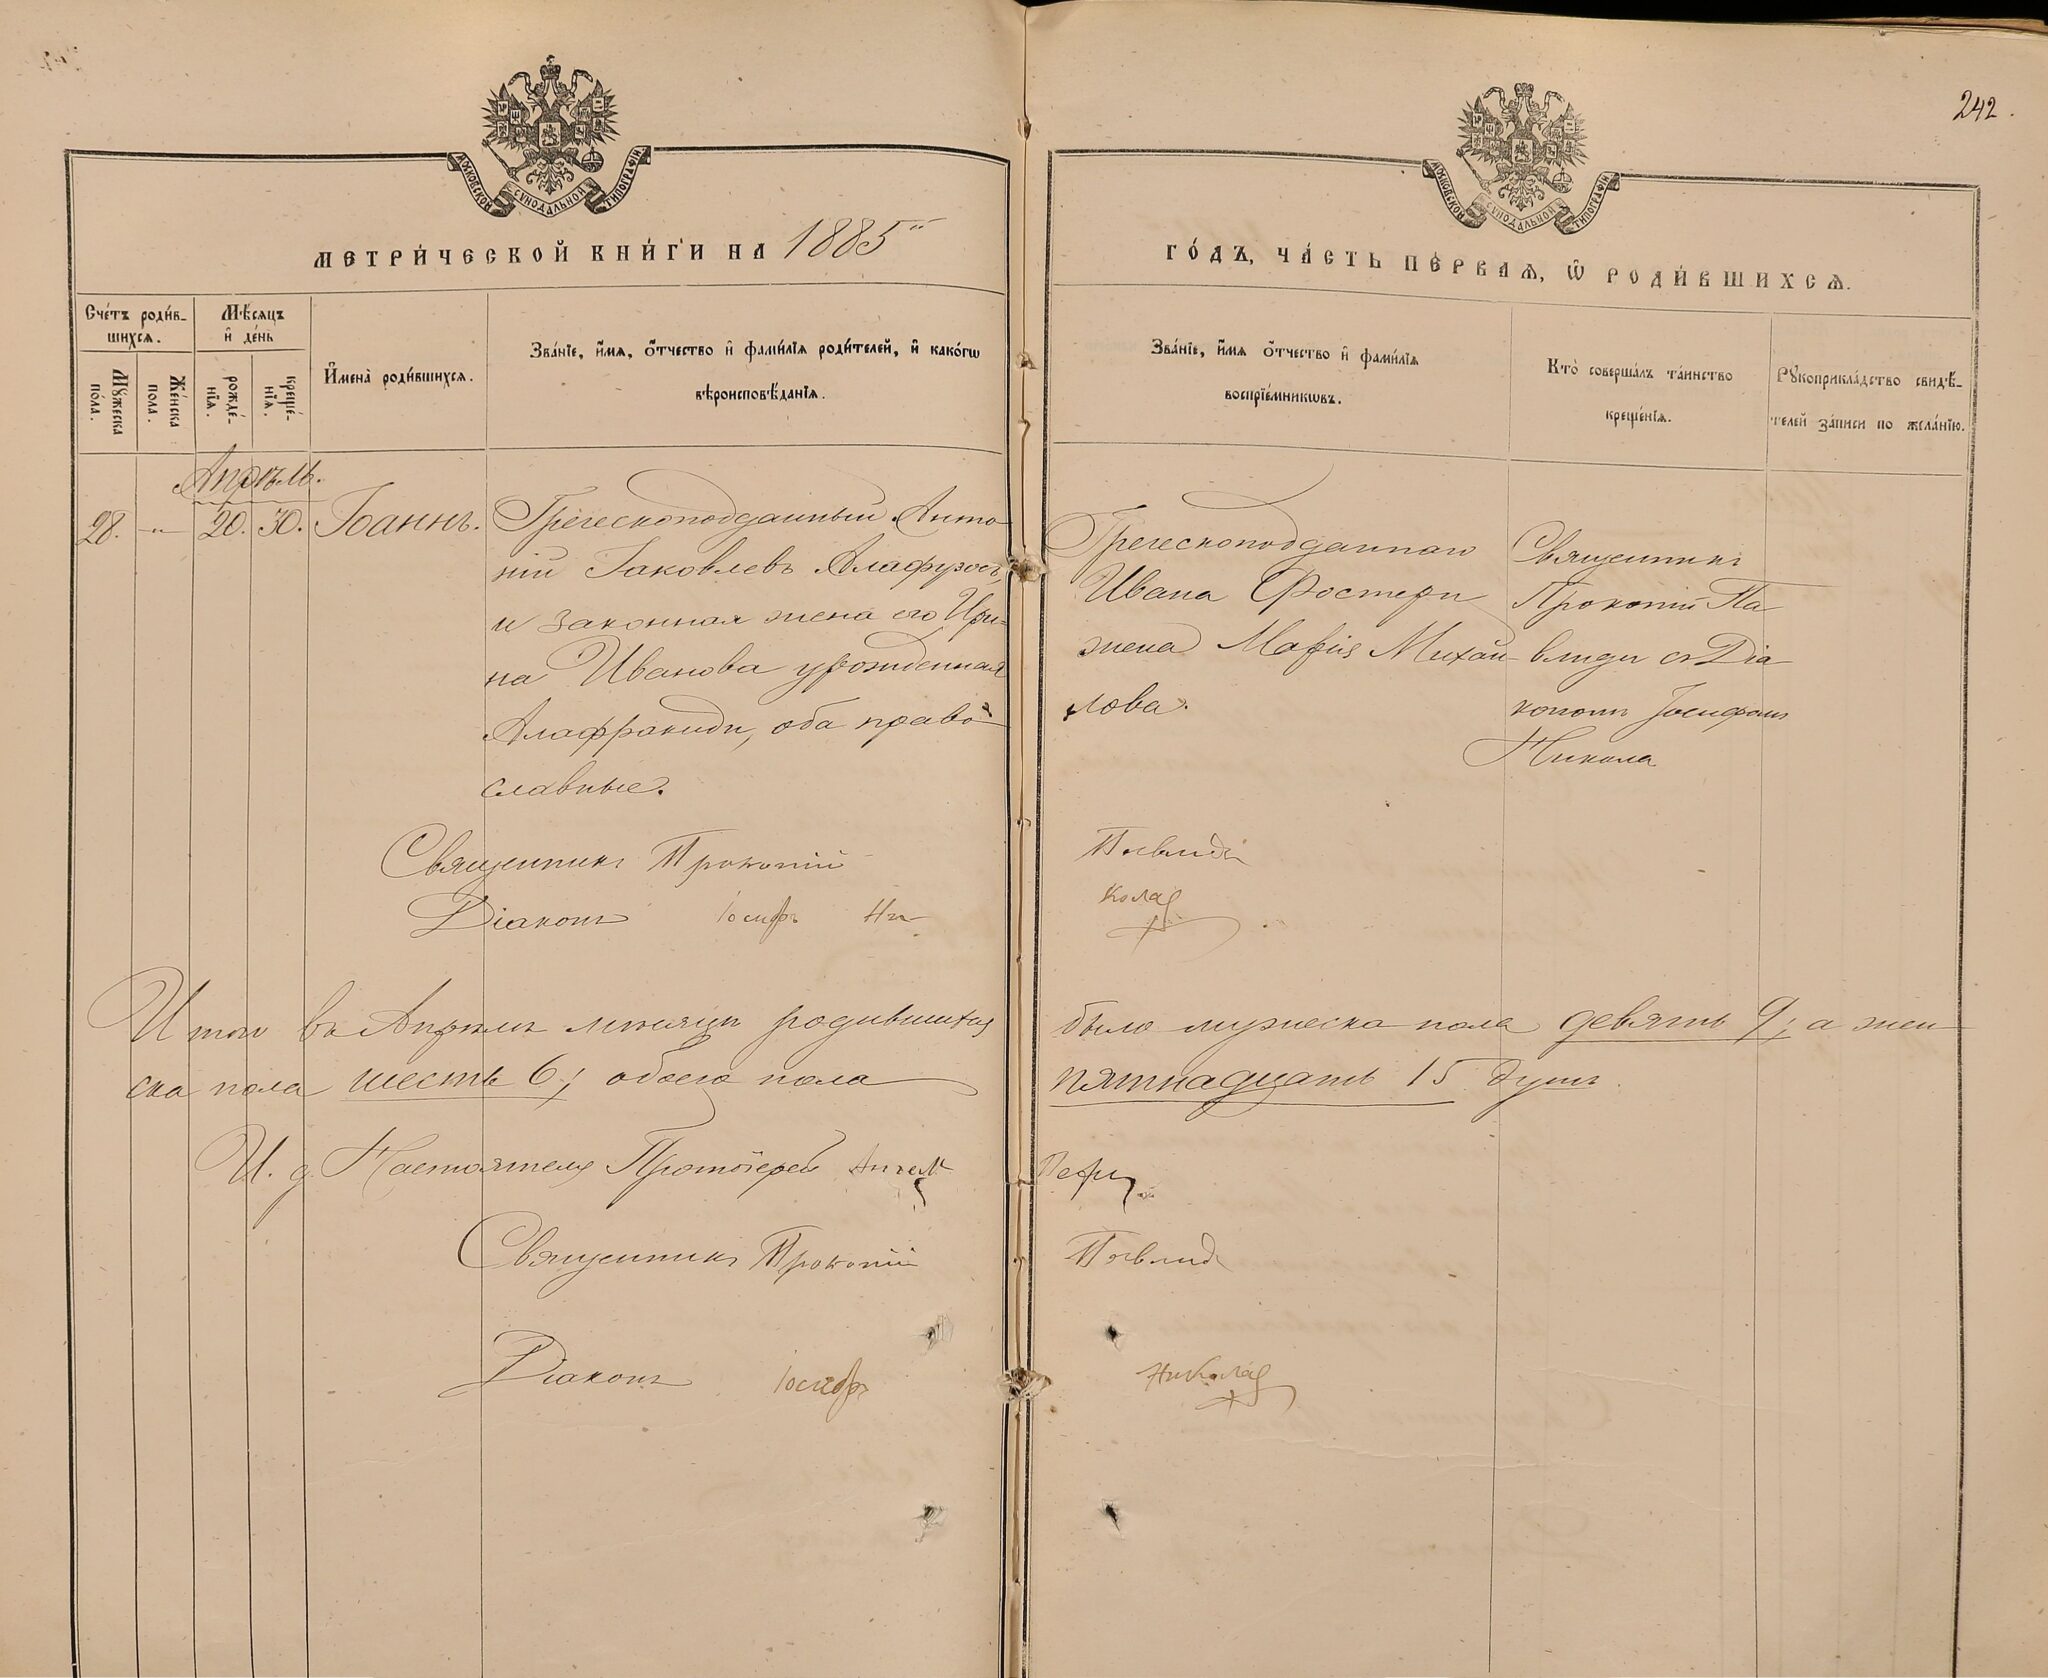 242.
МОСКОВСКОЙ СУНОДАЛЬНОЙ ТИПОГРАФІИ
МОСКОВСКОЙ СУНОДАЛЬНОЙ ТИПОГРАФІИ
МЕТРИ́ЧЕСКОЙ КНИ́ГИ НА 1885
ГО́ДЪ, ЧА́СТЬ ПЕ́РВАѦ, Ѡ҆ РОДИ́ВШИХСѦ.
Сче́тъ роди́в-
шихсѧ.
Мѹ́жеска
по́ла.
Же́нска
пола.
Мѣ́сяцъ
и҆ де́нь
рожде́-
нїѧ.
креще́-
нїѧ.
И҆мена̀ роди́вшихсѧ.
Зва́нїе, и҆́мѧ, о҆́тчество и҆ фами́лїѧ роди́телей, и҆ како́гѡ
вѣроисповѣ́данїѧ.
Зва́нїе, и҆́мѧ о҆́тчество и҆ фами́лїѧ
воспрїе́мникѡвъ.
Кто̀ соверша́лъ та́инство
креще́нїѧ.
Рѹкоприкла́дство свидѣ́-
телей за́писи по жела́нїю.
Апрѣль.
28. " 20. 30. Іоаннъ.
Греческоподданный Анто-
ній Іаковлевъ Алафузосъ,
и законная жена его Ири-
на Иванова урожденная
Алафракиди, оба право-
славные.
Греческоподданнаго
Ивана Фостери
жена Марія Михаи-
лова.
Священникъ
Прокопій Па
влиди съ Діа
кономъ Іосифомъ
Никола
Священникъ Прокопій Павлиди
Діаконъ Іосифъ Ни-колаѣ
Итого въ Апрѣлѣ мѣсяцѣ родившихся было мужеска пола девять 9; а жен-
ска пола шесть 6; обоего пола пятнадцать 15 душъ.
И. д. Настоятеля Протоіерей
Священникъ Прокопій Павлиди
Діаконъ Іосифъ Николаѣ